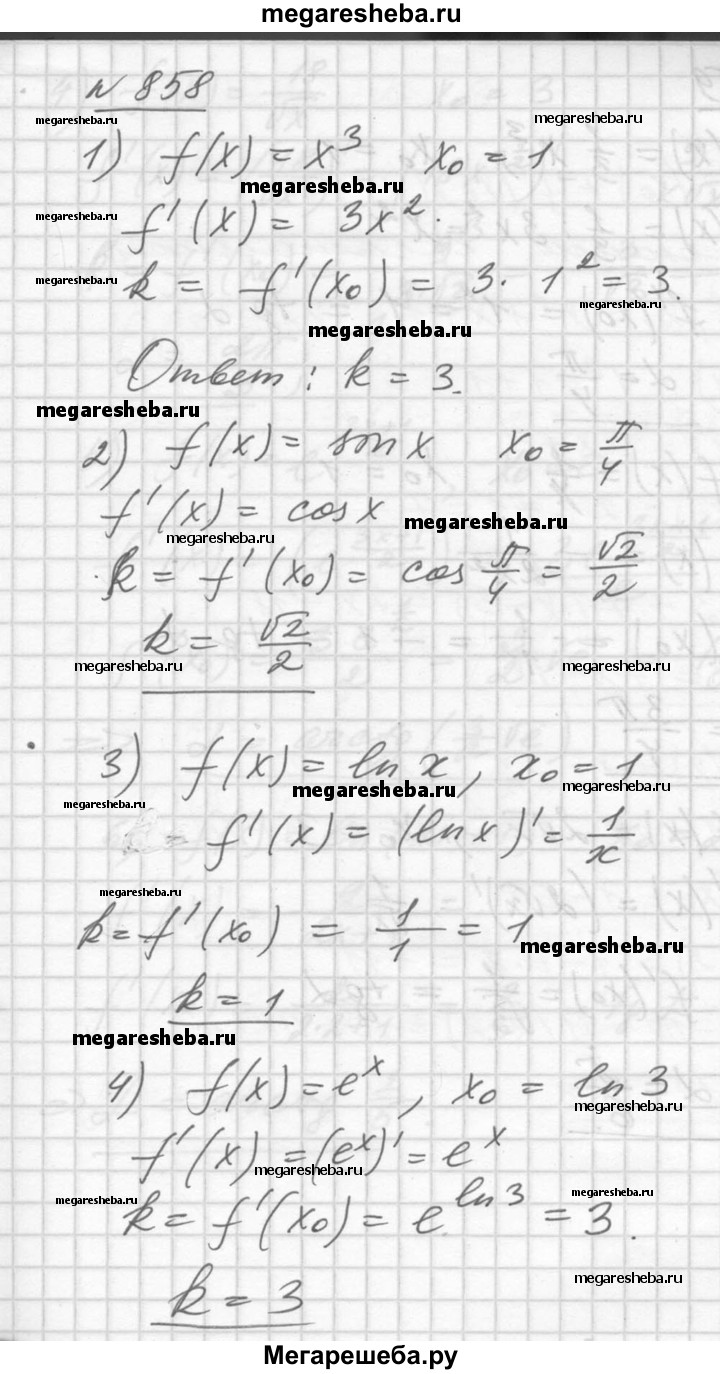 megaresheba.ru
№ 858
megaresheba.ru megaresheba.ru
1) f(x) = x³ x₀ = 1
megaresheba.ru
megaresheba.ru f'(x) = 3x².
megaresheba.ru k = f'(x₀) = 3 · 1² = 3.
megaresheba.ru
megaresheba.ru
Ответ: k = 3.
megaresheba.ru
2) f(x) = sin x x₀ = π/4
f'(x) = cos x megaresheba.ru
megaresheba.ru
k = f'(x₀) = cos π/4 = √2/2
k = √2/2
megaresheba.ru megaresheba.ru
3) f(x) = ln x, x₀ = 1
megaresheba.ru megaresheba.ru
megaresheba.ru
= f'(x) = (ln x)' = 1/x
megaresheba.ru
k = f'(x₀) = 1/1 = 1
megaresheba.ru
k = 1
megaresheba.ru
4) f(x) = eˣ, x₀ = ln 3
megaresheba.ru
f'(x) = (eˣ)' = eˣ
megaresheba.ru
megaresheba.ru megaresheba.ru
k = f'(x₀) = e^ln 3 = 3.
megaresheba.ru
k = 3
Мегарешеба.ру